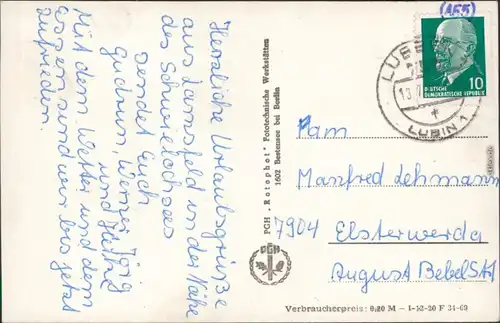 (455)
Herzliche Urlaubsgrüße
aus Lamsfeld in der Nähe
des Schwielochsees
sendet Euch
Gudrun, Werner, Jörg
und
Mit dem Wetter und dem
Essen sind wir bis jetzt
zufrieden.
PGH „Rotophot" Fototechnische Werkstätten
1602 Bestensee bei Berlin
PGH
10
DEUTSCHE
DEMOKRATISCHE REPUBLIK
LÜB
13.
LUBIN 1
Fam
Manfred Lehmann
7904 Elsterwerda
August Bebel Str
Verbraucherpreis: 0,20 M – 1-52-20 F 34-69